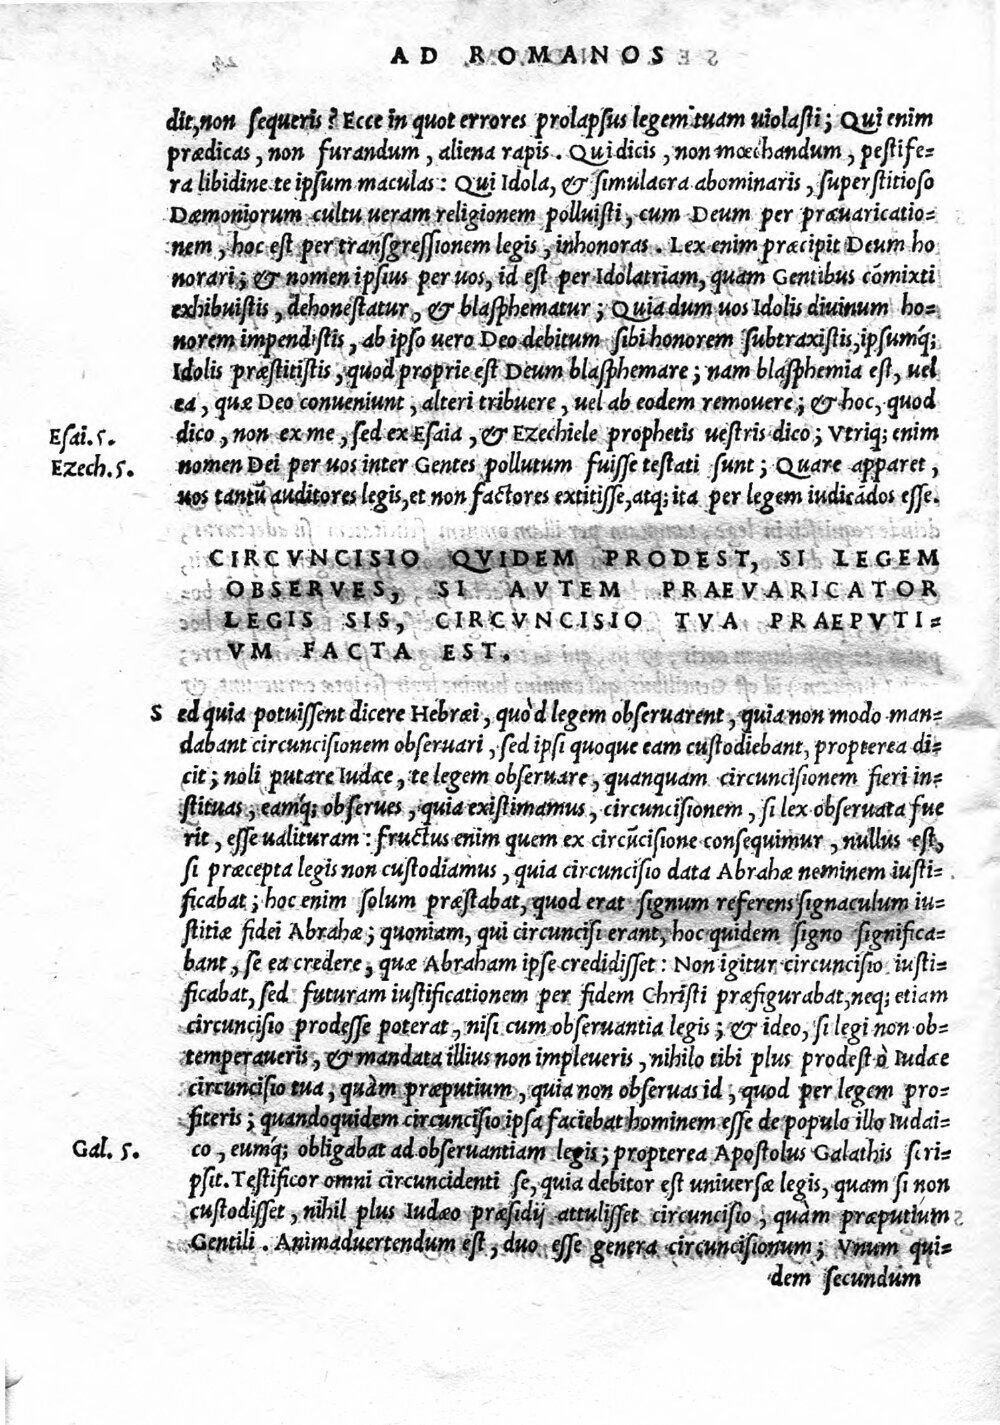 AD ROMANOS
dit, non sequeris? Ecce in quot errores prolapsus legem tuam uiolasti; Qui enim
prædicas, non furandum, aliena rapis. Qui dicis, non mœchandum, pestife=
ra libidine te ipsum maculas: Qui Idola, & simulacra abominaris, superstitioso
Dæmoniorum cultu ueram religionem polluisti, cum Deum per præuaricatio=
nem, hoc est per transgressionem legis, inhonoras. Lex enim præcipit Deum ho
norari; & nomen ipsius per uos, id est per Idolatriam, quam Gentibus cōmixti
exhibuistis, dehonestatur, & blasphematur; Quia dum uos Idolis diuinum ho=
norem impendistis, ab ipso uero Deo debitum sibi honorem subtraxistis, ipsumq́;
Idolis præstitistis, quod proprie est Deum blasphemare; nam blasphemia est, uel
ea, quæ Deo conueniunt, alteri tribuere, uel ab eodem remouere; & hoc, quod
Esai. 5. dico, non ex me, sed ex Esaia, & Ezechiele prophetis uestris dico; Vtriq; enim
Ezech. 5. nomen Dei per uos inter Gentes pollutum fuisse testati sunt; Quare apparet,
uos tantū auditores legis, et non factores extitisse, atq; ita per legem iudicādos esse.
CIRCVNCISIO QVIDEM PRODEST, SI LEGEM
OBSERVES, SI AVTEM PRAEVARICATOR
LEGIS SIS, CIRCVNCISIO TVA PRAEPVTI=
VM FACTA EST.
S ed quia potuissent dicere Hebræi, quòd legem obseruarent, quia non modo man=
dabant circuncisionem obseruari, sed ipsi quoque eam custodiebant, propterea di=
cit; noli putare Iudæe, te legem obseruare, quanquam circuncisionem fieri in=
stituas, eamq́; obserues, quia existimamus, circuncisionem, si lex obseruata fue
rit, esse ualituram: fructus enim quem ex circūcisione consequimur, nullus est,
si præcepta legis non custodiamus, quia circuncisio data Abrahæ neminem iusti=
ficabat; hoc enim solum præstabat, quod erat signum referens signaculum iu=
stitiæ fidei Abrahæ; quoniam, qui circuncisi erant, hoc quidem signo significa=
bant, se ea credere, quæ Abraham ipse credidisset: Non igitur circuncisio iusti=
ficabat, sed futuram iustificationem per fidem Christi præfigurabat, neq; etiam
circuncisio prodesse poterat, nisi cum obseruantia legis; & ideo, si legi non ob=
temperaueris, & mandata illius non impleueris, nihilo tibi plus prodest ò Iudæe
circuncisio tua, quàm præputium, quia non obseruas id, quod per legem pro=
fiteris; quandoquidem circuncisio ipsa faciebat hominem esse de populo illo Iudai=
Gal. 5. co, eumq́; obligabat ad obseruantiam legis; propterea Apostolus Galathis scri=
psit. Testificor omni circuncidenti se, quia debitor est uniuersæ legis, quam si non
custodisset, nihil plus Iudæo præsidij attulisset circuncisio, quàm præputium
Gentili. Animaduertendum est, duo esse genera circuncisionum; Vnum qui=
dem secundum